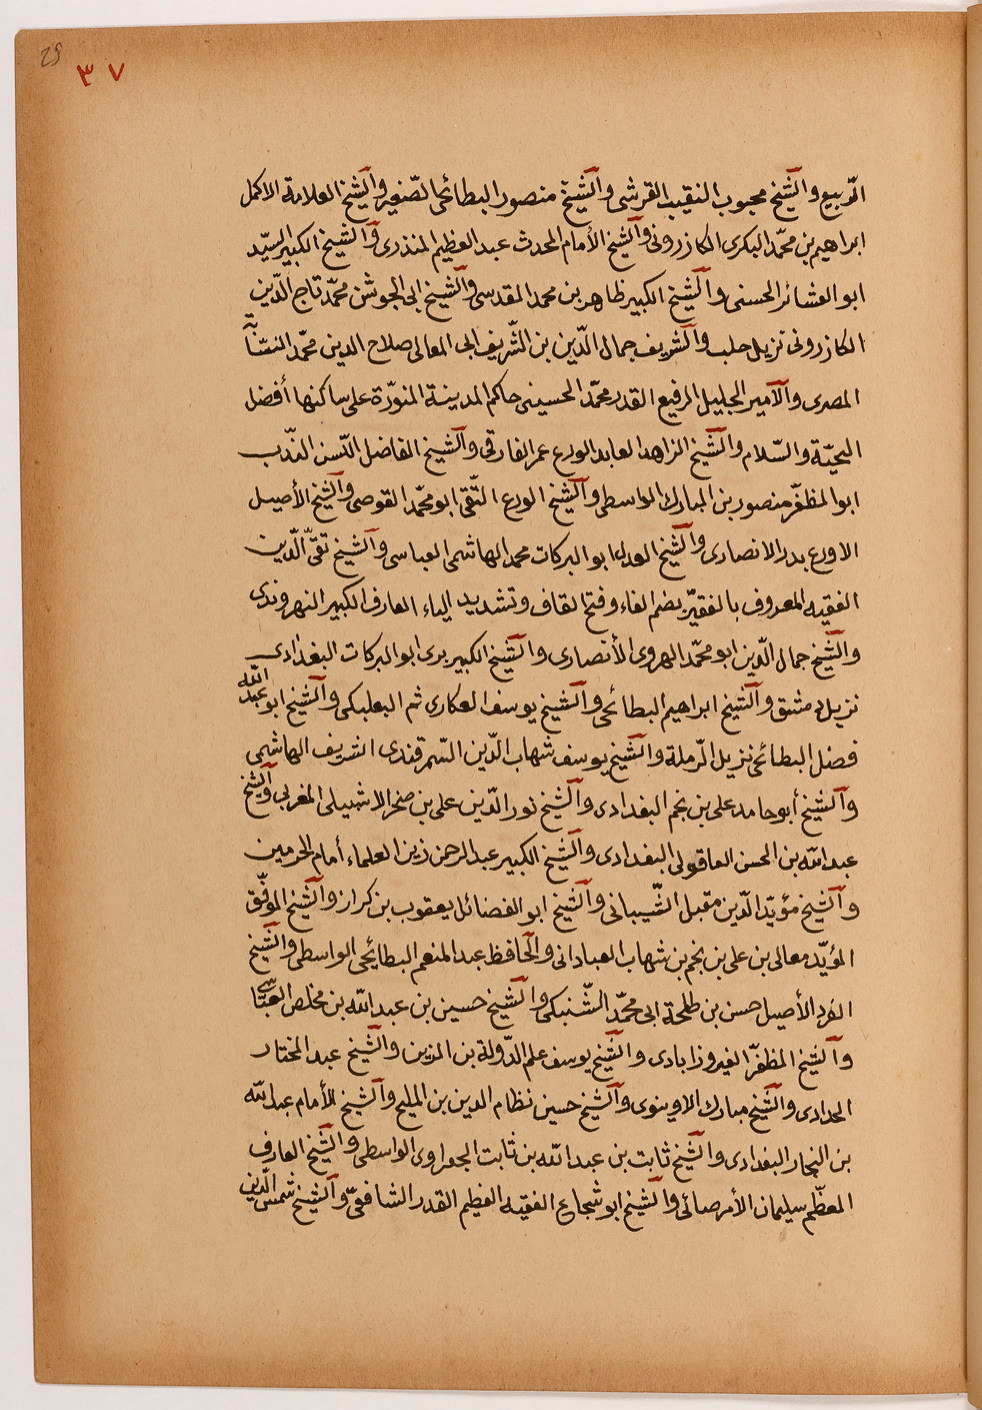 29
٣٧
الربيع والشيخ محبوب النقيب القرشى والشيخ منصور البطائحى الصّغير والشيخ العلامة الاكمل
ابراهيم بن محمّد البكرى الكازرونى والشيخ الأمام المحدث عبد العظيم المنذرى والشيخ الكبير السيّد
ابو العشائر الحسنى والشيخ الكبير ظاهر بن محمد المقدسى والشيخ ابى الجوشن محمّد تاج الدّين
الكازرونى نزيل حلب والشريف جمال الدّين بن الشّريف ابى المعالى صلاح الدين محمّد
المصرى والآمير الجليل الرفيع القدر محمّد الحسينى حاكم المدينة المنوّرة على ساكنها أفضل
التحيّة والسّلام والشّيخ الزاهد العابد الورع عمر الفارقى والشيخ الفاضل اللّسن النّدب
ابو المظفّر منصور بن المبارك الواسطى والشّيخ الورع التّقى ابو محمّد القوصى والشيخ الأصيل
الاورع بدر الانصارى والشيخ العدل ابو البركات محمد الهاشمى العباسى والشيخ تقىّ الدّين
الفقيه المعروف بالفقيّر بضم الفاء وفتح القاف وتشديد الياء العارف الكبير النهروندى
والشّيخ جمال الدّين ابو محمّد الهروى الأنصارى والشّيخ الكبير برى ابو البركات البغدادى
نزيل دمشق والشيخ ابراهيم البطائحى والشيخ يوسف العكارى ثم البعلبكى والشيخ ابو عبد الله
فضل البطائحى نزيل الرّملة والشيخ يوسف شهاب الدّين السّمرقندى الشريف الهاشمى
والشيخ أبو حامد على بن نجم البغدادى والشيخ نور الدّين على بن صخر الاشبيلى المغربى والشيخ
عبد الله بن الحسن العاقولى البغدادى والشيخ الكبير عبد الرحمن زين العلماء أمام الحرمين
والشيخ مؤيّد الدّين مقبل الشّيبانى والشيخ ابو الفضائل يعقوب بن كراز والشيخ الموفّق
المؤيّد معالى بن على بن نجم بن شهاب العبادانى والحافظ عبد المنعم البطائحى الواسطى والشّيخ
الفرد الأصيل حسن بن طلحة ابى محمّد الشّنبكى والشيخ حسين بن عبد الله بن مخلص
والشيخ المظفّر الفيروزابادى والشّيخ يوسف علم الدّولة بن المزين والشّيخ عبد المختار
الحدادى والشّيخ مبارك الاوينوى والشيخ حسين نظام الدين بن المليح والشيخ الأمام عبد الله
بن النجار البغدادى والشيخ ثابت بن عبد الله بن ثابت الجعراوى الواسطى والشّيخ العارف
المعظّم سليمان الأمرصائى والشيخ ابو شجاع الفقيه العظيم القدر الشافعىّ والشيخ شمس الدّين